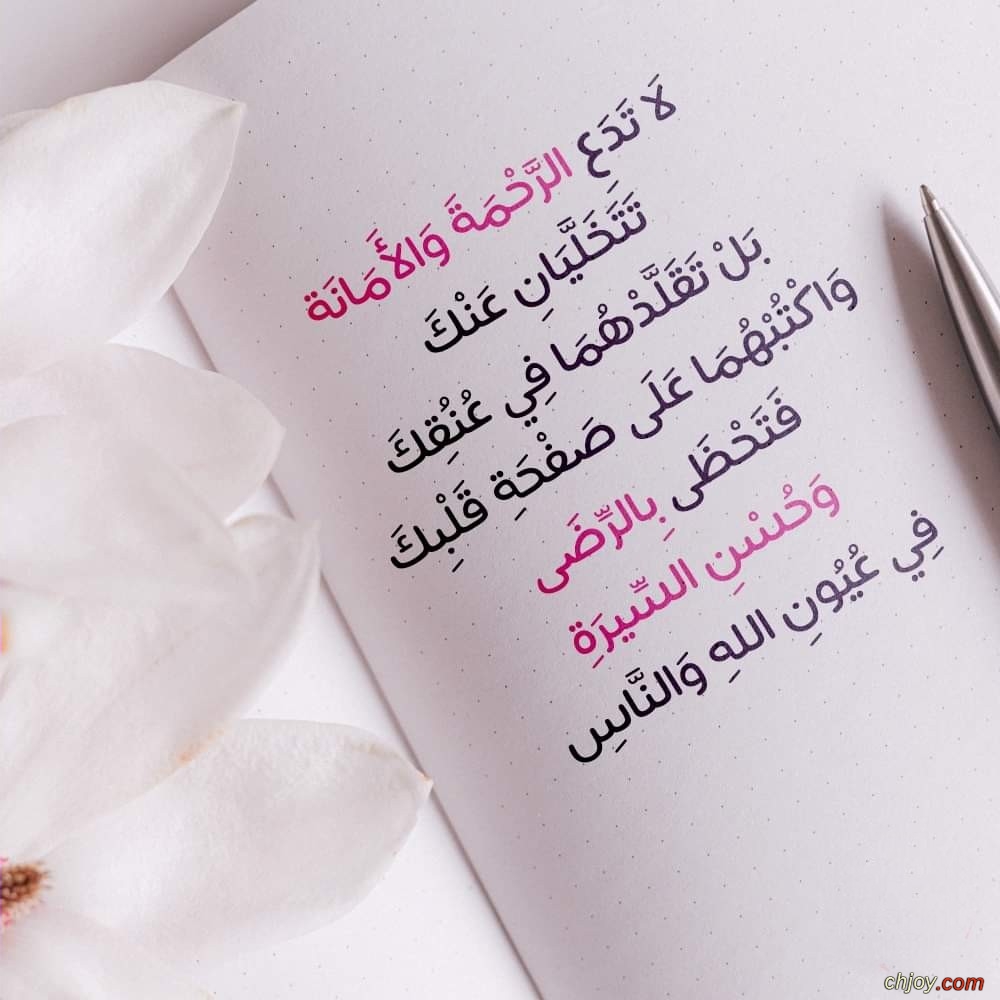 لَا تَدَعِ الرَّحْمَةَ وَالأَمَانَة
تَتَخَلَّيَانِ عَنْكَ
بَلْ تَقَلَّدْهُمَا فِي عُنُقِكَ
وَاكْتُبْهُمَا عَلَى صَفْحَةِ قَلْبِكَ
فَتَحْظَى بِالرِّضَى
وَحُسْنِ السِّيرَةِ
فِي عُيُونِ اللهِ وَالنَّاسِ
chjoy.com